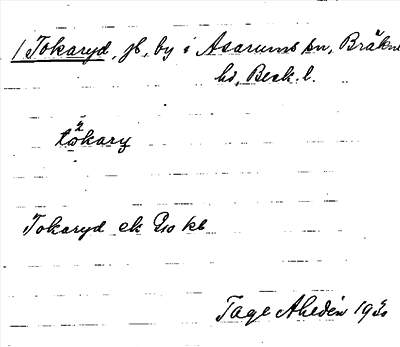 / Tokaryd, jb, by i Asarums sn, Bräkne
hd, Blek. l.
tokary
Tokaryd ek Eo kb
Tage Ahldén 19